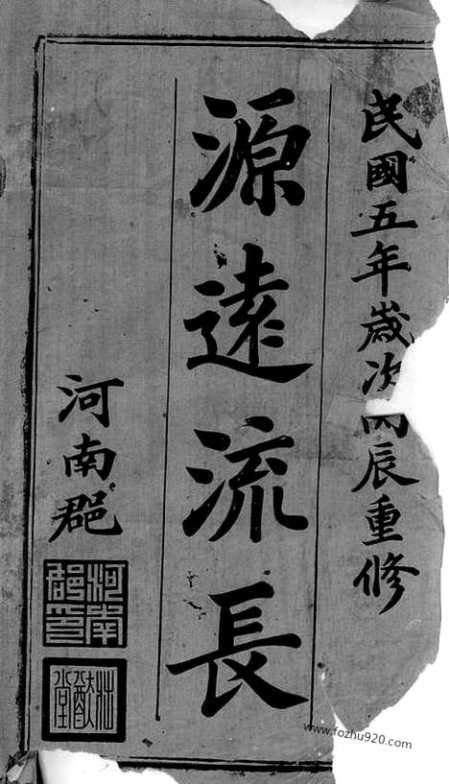 民國五年歲次丙辰重修
源遠流長
河南郡
河南郡印
壯猷堂
www.fozhu920.com